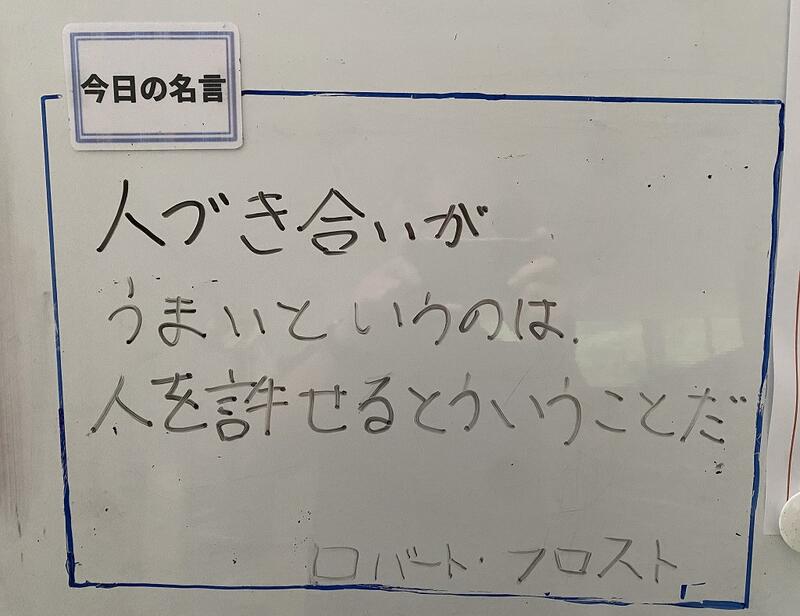 今日の名言
人づき合いが
うまいというのは、
人を許せるとういうことだ
ロバート・フロスト